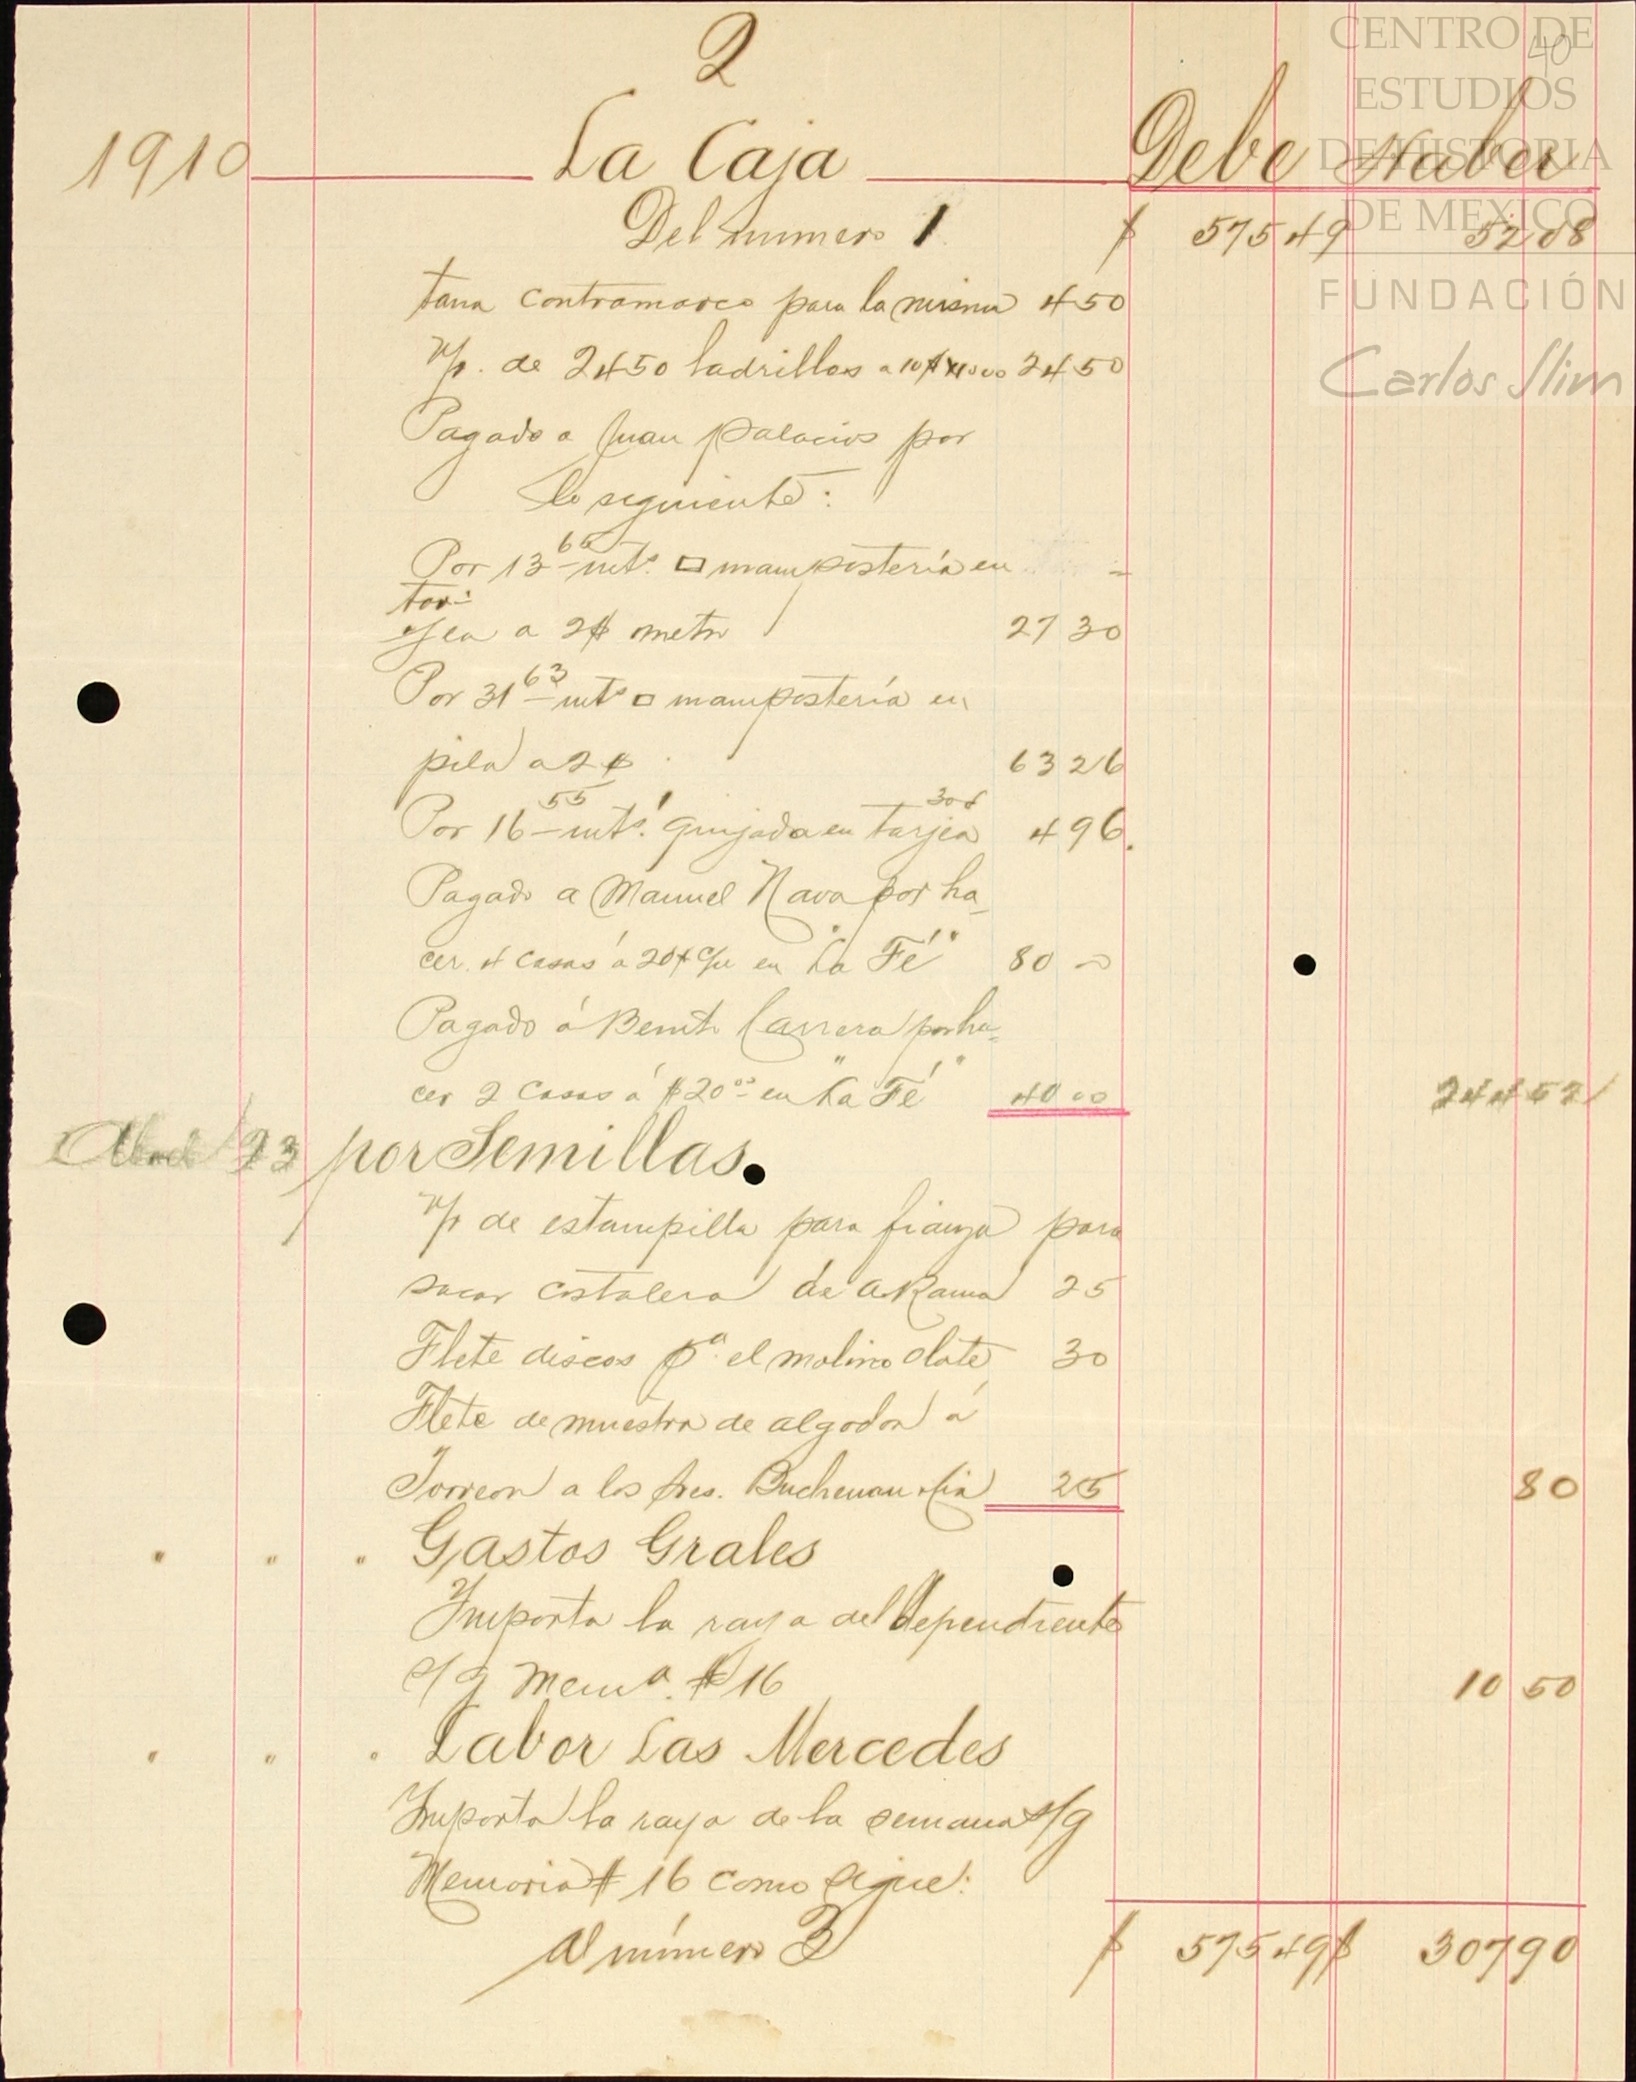 2
40
1910 La Caja Debe Haber
Del numero 1 $ 575 49 52 08
tana contramarco para la misma 4 50
V/p. de 2450 ladrillos a 10$ 24 50
Pagado a Juan Palacios por
lo siguiente:
Por 13 65 mts. □ mampostería en tar-
jea a 2$ metro 27 30
Por 31 63 mts □ mampostería en
pila a 2$ 63 26
Por 16 55 mts. quijada en tarjea 30¢ 4 96
Pagado a Manuel Nava por ha-
cer 4 casas á 20$ c/u en "La Fé" 80 00
Pagado á Benito Carrera por ha-
cer 2 casas á $20 00 en "La Fé" 40 00 244 52
Abril 23 por Semillas.
V/p de estampilla para fianza para
sacar costalera de 25
Flete discos pa. el molino olote 30
Flete de muestra de algodon á
Torreon a los Sres. Buchenau Cia 25 80
" " " Gastos Grales
Importa la raya del dependiente
s/g Mema. # 16 10 50
" " " Labor Las Mercedes
Importa la raya de la semana s/g
Memoria # 16 como sigue:
Al número 3 $ 575 49 $ 307 90
CENTRO DE
ESTUDIOS
DE HISTORIA
DE MEXICO
FUNDACIÓN
Carlos Slim